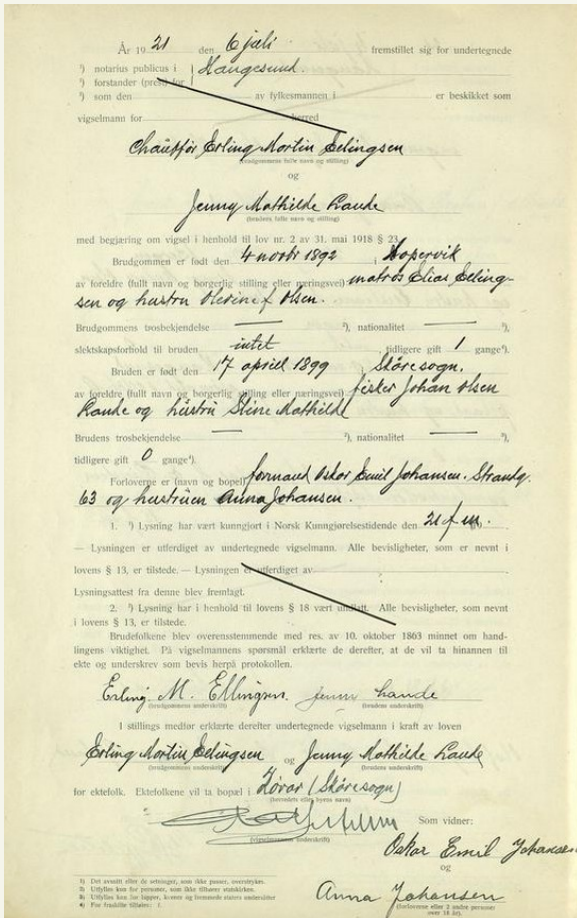 År 1921 den 6 juli fremstillet sig for undertegnede
¹) notarius publicus i Haugesund.
²) forstander (prest) for
³) som den av fylkesmannen i er beskikket som
vigselmann for herred
Chauffør Erling Mortin Ellingsen
(brudgommens fulle navn og stilling)
og
Jenny Mathilde Lande
(brudens fulle navn og stilling)
med begjæring om vigsel i henhold til lov nr. 2 av 31. mai 1918 § 23.
Brudgommen er født den 4 novbr 1892 i Kopervik
av foreldre (fullt navn og borgerlig stilling eller næringsvei) matros Elias Elling-
sen og hustru Olevine f Olsen.
Brudgommens trosbekjendelse ²), nationalitet ³),
slektskapsforhold til bruden intet tidligere gift 1 gange⁴).
Bruden er født den 17 april 1899 i Skåresogn.
av foreldre (fullt navn og borgerlig stilling eller næringsvei) fisker Johan Olsen
Lande og hustru Stine Mathilde
Brudens trosbekjendelse ²), nationalitet ³),
tidligere gift 0 gange⁴).
Forloverne er (navn og bopel) formand Oskar Emil Johansen. Strandg.
63 og hustruen Anna Johansen.
1. ¹) Lysning har vært kunngjort i Norsk Kunngjørelsestidende den 21 f m.
— Lysningen er utferdiget av undertegnede vigselmann. Alle bevisligheter, som er nevnt i
lovens § 13, er tilstede. — Lysningen er utferdiget av
Lysningsattest fra denne blev fremlagt.
2. ¹) Lysning har i henhold til lovens § 18 vært unlatt. Alle bevisligheter, som nevnt
i lovens § 13, er tilstede.
Brudefolkene blev overensstemmende med res. av 10. oktober 1863 minnet om hand-
lingens viktighet. På vigselmannens spørsmål erklærte de derefter, at de vil ta hinannen til
ekte og underskrev som bevis herpå protokollen.
Erling. M. Ellingsen. Jenny Lande
(brudgommens underskrift) (brudens underskrift)
I stillings medfør erklærte derefter undertegnede vigselmann i kraft av loven
Erling Mortin Ellingsen og Jenny Mathilde Lande
(brudgommens underskrift) (brudens underskrift)
for ektefolk. Ektefolkene vil ta bopæl i (Skåresogn)
(herredets eller byens navn)
Som vidner:
(vigselmannens underskrift)
Oskar Emil Johansen
og
Anna Johansen
(forloverne eller 2 andre personer
over 18 år).
1) Det avsnitt eller de setninger, som ikke passer, overstrykes.
2) Utfylles kun for personer, som ikke tilhører statskirken.
3) Utfylles kun for lapper, kvener og fremmede staters undersåtter
4) For fraskilte tilføies: f.